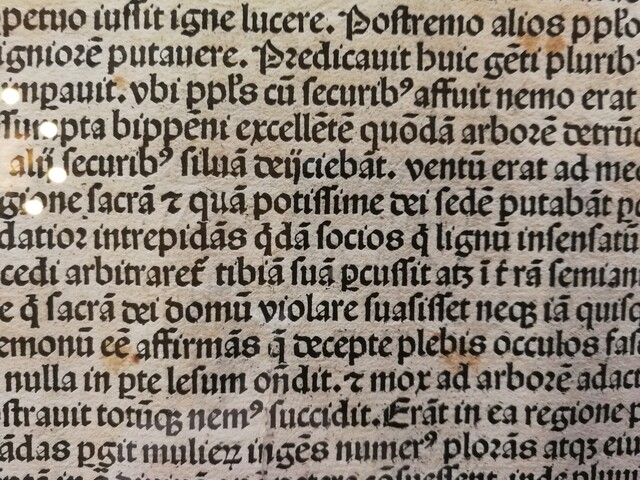 petuo iussit igne lucere. Postremo alios ppľo
igniorē putauere. Predicauit huic gēti pluribꝰ
impauit. vbi ppľs cū securibꝰ affuit nemo erat
ssumpta bippēni excellētē quōdā arborē detrūc
alij securibꝰ siluā deijciebāt. ventū erat ad med
gione sacrā ⁊ quā potissime dei sedē putabāt pc
datioꝛ intrepidās q̄dā socios q̄ lignū insensatū
cedi arbitraret᷑ tibiā suā ꝑcussit atꝫ ī t᷑rā semian
e q̄ sacrā dei domū violare suasisset neqꝫ iā quisq
emonū eē affirmās q̄ decepte plebis occulos fasc
nulla in ꝑte lesum ondit. ⁊ mox ad arborē adact
ostrauit totūqꝫ nemꝰ succidit. Erāt in ea regione p
ādas ꝑgit mulieꝝ ingēs numerꝰ ploꝛās atqꝫ eiu